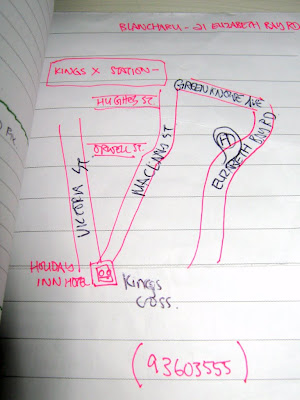 BLANCHARD - 21 ELIZABETH BAY RD
KINGS X STATION -
GREENKNOWE AVE
HUGHES ST.
MACLEAY ST
ORWELL ST.
VICTORIA ST
ELIZABETH BAY RD
HOLIDAY
INN HOTEL
KINGS
CROSS.
(93603555)